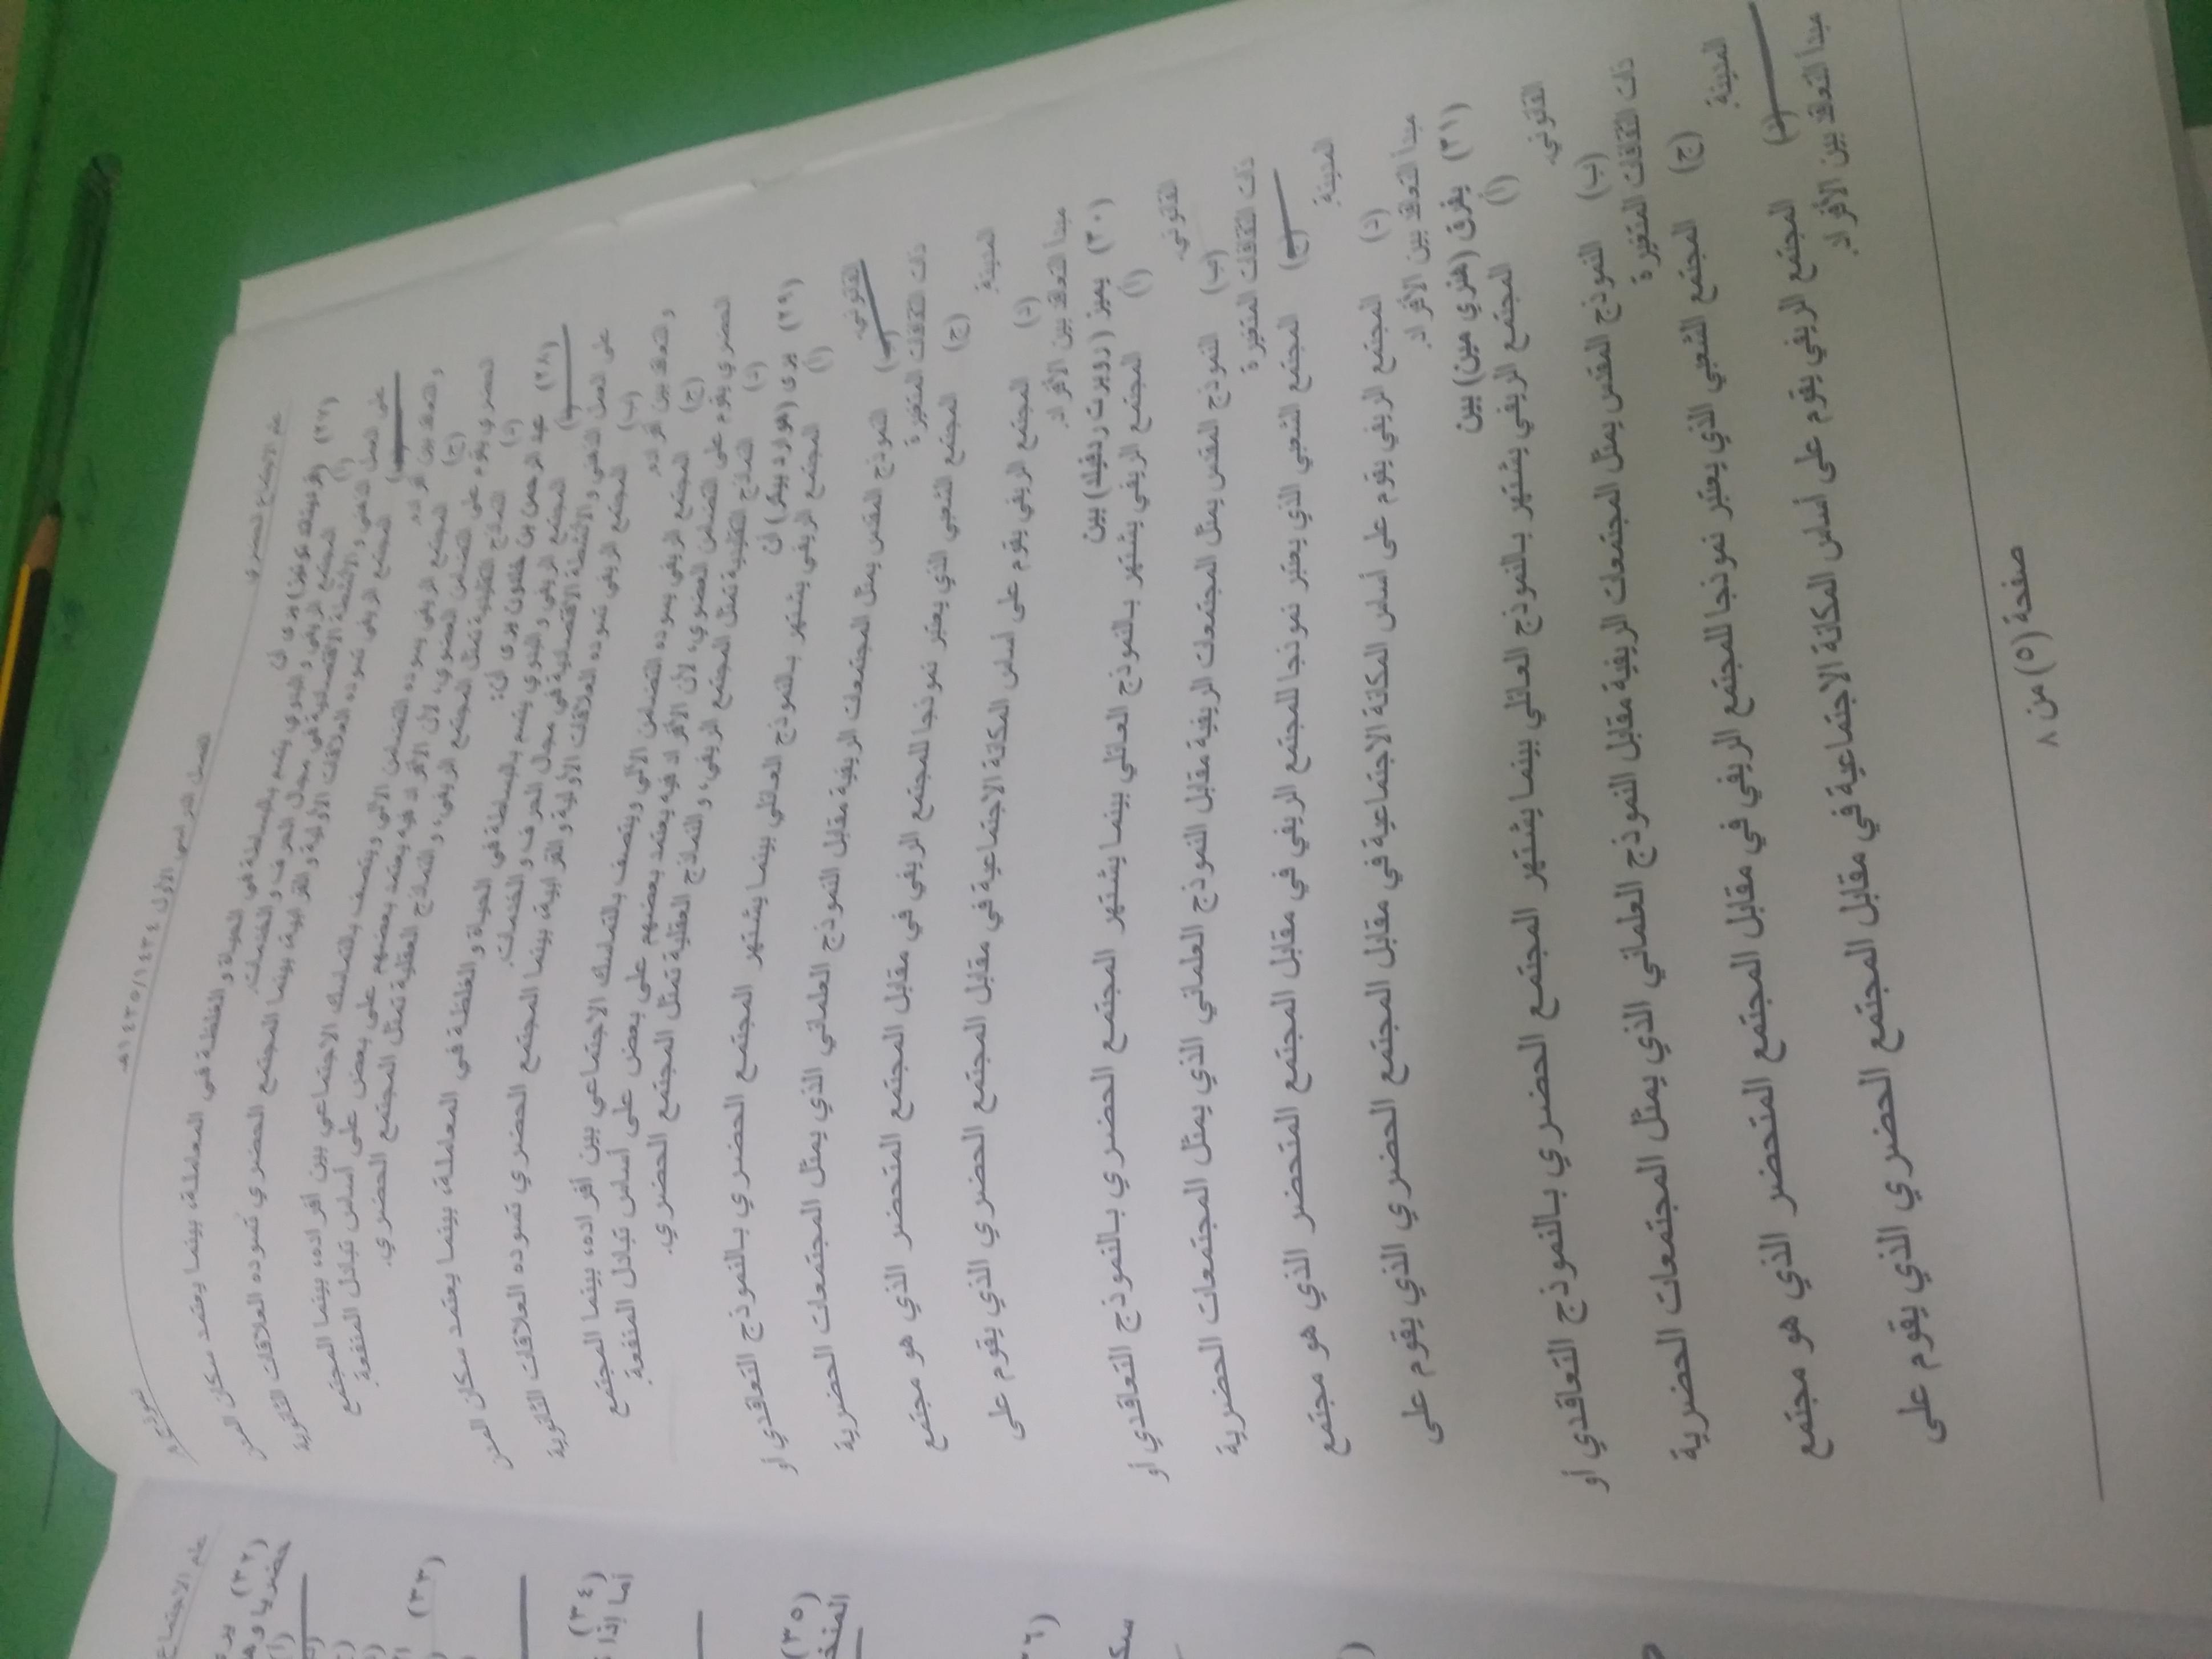 علم الاجتماع الحضري
الفصل الدراسي الأول ١٤٣٤/١٤٣٥هـ
نموذج
(٢٧) (فرديناند تونيز) يرى أن
(أ) المجتمع الريفي والبدوي يتسم بالبساطة في الحياة والغلظة في المعاملة، بينما يعتمد سكان المدن
على العمل الذهني والأنشطة الاقتصادية في مجال الحرف والخدمات.
(ب) المجتمع الريفي تسوده العلاقات الأولية والقرابية، بينما المجتمع الحضري تسوده العلاقات الثانوية
والتعاقد بين أفراده.
(ج) المجتمع الريفي يسوده التضامن الآلي ويتصف بالتماسك الاجتماعي بين أفراده، بينما المجتمع
الحضري يقوم على التضامن العضوي، لأن الأفراد فيه يعتمد بعضهم على بعض على أساس تبادل المنفعة.
(د) النماذج التقليدية تمثل المجتمع الريفي، والنماذج العقلية تمثل المجتمع الحضري.
(٢٨) عبد الرحمن بن خلدون يرى أن:
(أ) المجتمع الريفي والبدوي يتسم بالبساطة في الحياة والغلظة في المعاملة، بينما يعتمد سكان المدن
على العمل الذهني والأنشطة الاقتصادية في مجال الحرف والخدمات.
(ب) المجتمع الريفي تسوده العلاقات الأولية والقرابية، بينما المجتمع الحضري تسوده العلاقات الثانوية
والتعاقد بين أفراده.
(ج) المجتمع الريفي يسوده التضامن الآلي ويتصف بالتماسك الاجتماعي بين أفراده، بينما المجتمع
الحضري يقوم على التضامن العضوي، لأن الأفراد فيه يعتمد بعضهم على بعض على أساس تبادل المنفعة
(د) النماذج التقليدية تمثل المجتمع الريفي، والنماذج العقلية تمثل المجتمع الحضري.
(٢٩) يرى (هوارد بيكر) أن
(أ) المجتمع الريفي يشتهر بالنموذج العائلي بينما يشتهر المجتمع الحضري بالنموذج التعاقدي أو
القانوني.
(ب) النموذج المقدس يمثل المجتمعات الريفية مقابل النموذج العلماني الذي يمثل المجتمعات الحضرية
ذات الثقافات المتغيرة
(ج) المجتمع الشعبي الذي يعتبر نموذجا للمجتمع الريفي في مقابل المجتمع المتحضر الذي هو مجتمع
المدينة
(د) المجتمع الريفي يقوم على أساس المكانة الاجتماعية في مقابل المجتمع الحضري الذي يقوم على
مبدأ التعاقد بين الأفراد.
(٣٠) يميز (روبرت ردفيلد) بين
(أ) المجتمع الريفي يشتهر بالنموذج العائلي بينما يشتهر المجتمع الحضري بالنموذج التعاقدي أو
القانوني.
(ب) النموذج المقدس يمثل المجتمعات الريفية مقابل النموذج العلماني الذي يمثل المجتمعات الحضرية
ذات الثقافات المتغيرة
(ج) المجتمع الشعبي الذي يعتبر نموذجا للمجتمع الريفي في مقابل المجتمع المتحضر الذي هو مجتمع
المدينة
(د) المجتمع الريفي يقوم على أساس المكانة الاجتماعية في مقابل المجتمع الحضري الذي يقوم على
مبدأ التعاقد بين الأفراد.
(٣١) يفرق (هنري مين) بين
(أ) المجتمع الريفي يشتهر بالنموذج العائلي بينما يشتهر المجتمع الحضري بالنموذج التعاقدي أو
القانوني.
(ب) النموذج المقدس يمثل المجتمعات الريفية مقابل النموذج العلماني الذي يمثل المجتمعات الحضرية
ذات الثقافات المتغيرة
(ج) المجتمع الشعبي الذي يعتبر نموذجا للمجتمع الريفي في مقابل المجتمع المتحضر الذي هو مجتمع
المدينة
(د) المجتمع الريفي يقوم على أساس المكانة الاجتماعية في مقابل المجتمع الحضري الذي يقوم على
مبدأ التعاقد بين الأفراد.
صفحة (٥) من ٨
علم الاجتماع
(٣٢)
حضريا
(٣٣)
(٣٤)
أما إذا
(٣٥)